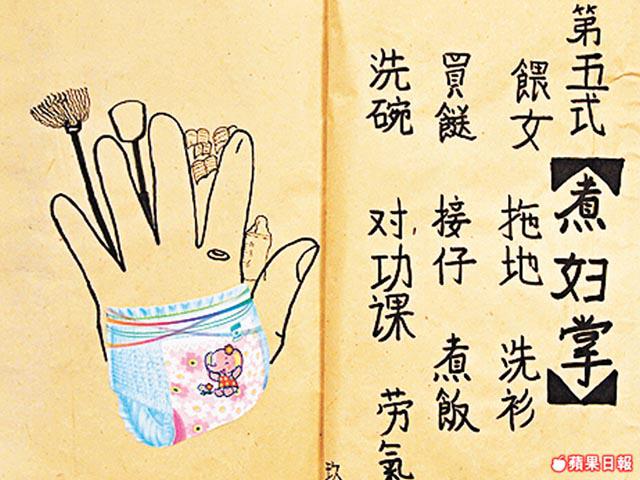 第五式
【煮妇掌】
餵女 拖地 洗衫
買餸 接仔 煮飯
洗碗 对功课 劳氣
玖
蘋果日報